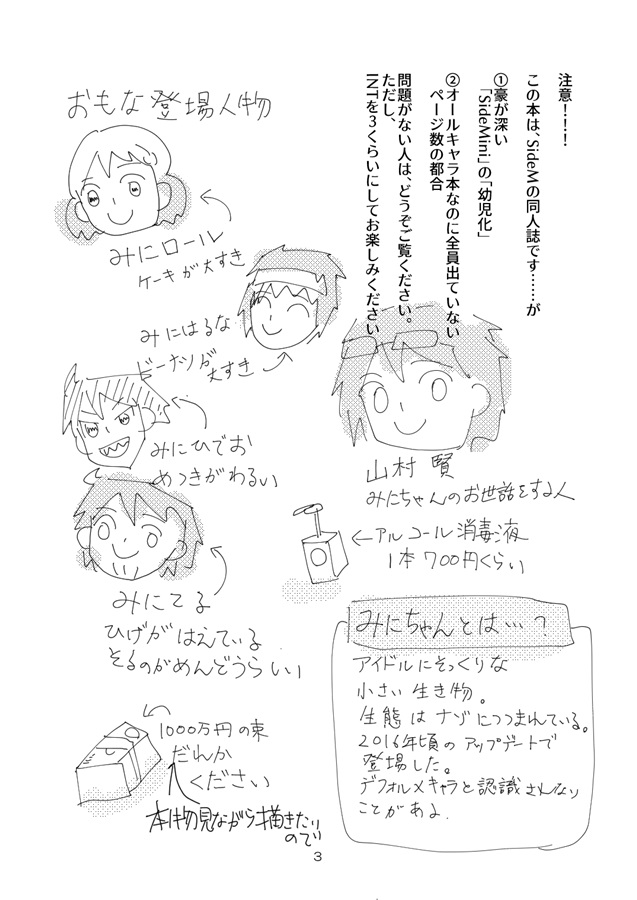 注意!!!
この本は、SideMの同人誌です……が
①豪が深い
「SideMini」の「幼児化」
②オールキャラ本なのに全員出ていない
ページ数の都合
問題がない人は、どうぞご覧ください。
ただし、
INTを3くらいにしてお楽しみください
おもな登場人物
みにロール
ケーキが大すき
みにはるな
ドーナツが
大すき
みにひでお
めつきがわるい
山村 賢
みにちゃんのお世話をする人
アルコール消毒液
1本700円くらい
みにてる
ひげがはえている
そるのがめんどうらしい
1000万円の束
だれか
ください
本物見ながら描きたい
ので
みにちゃんとは…?
アイドルにそっくりな
小さい生き物。
生態はナゾにつつまれている。
2016年頃のアップデートで
登場した。
デフォルメキャラと認識されない
ことがあるよ
3